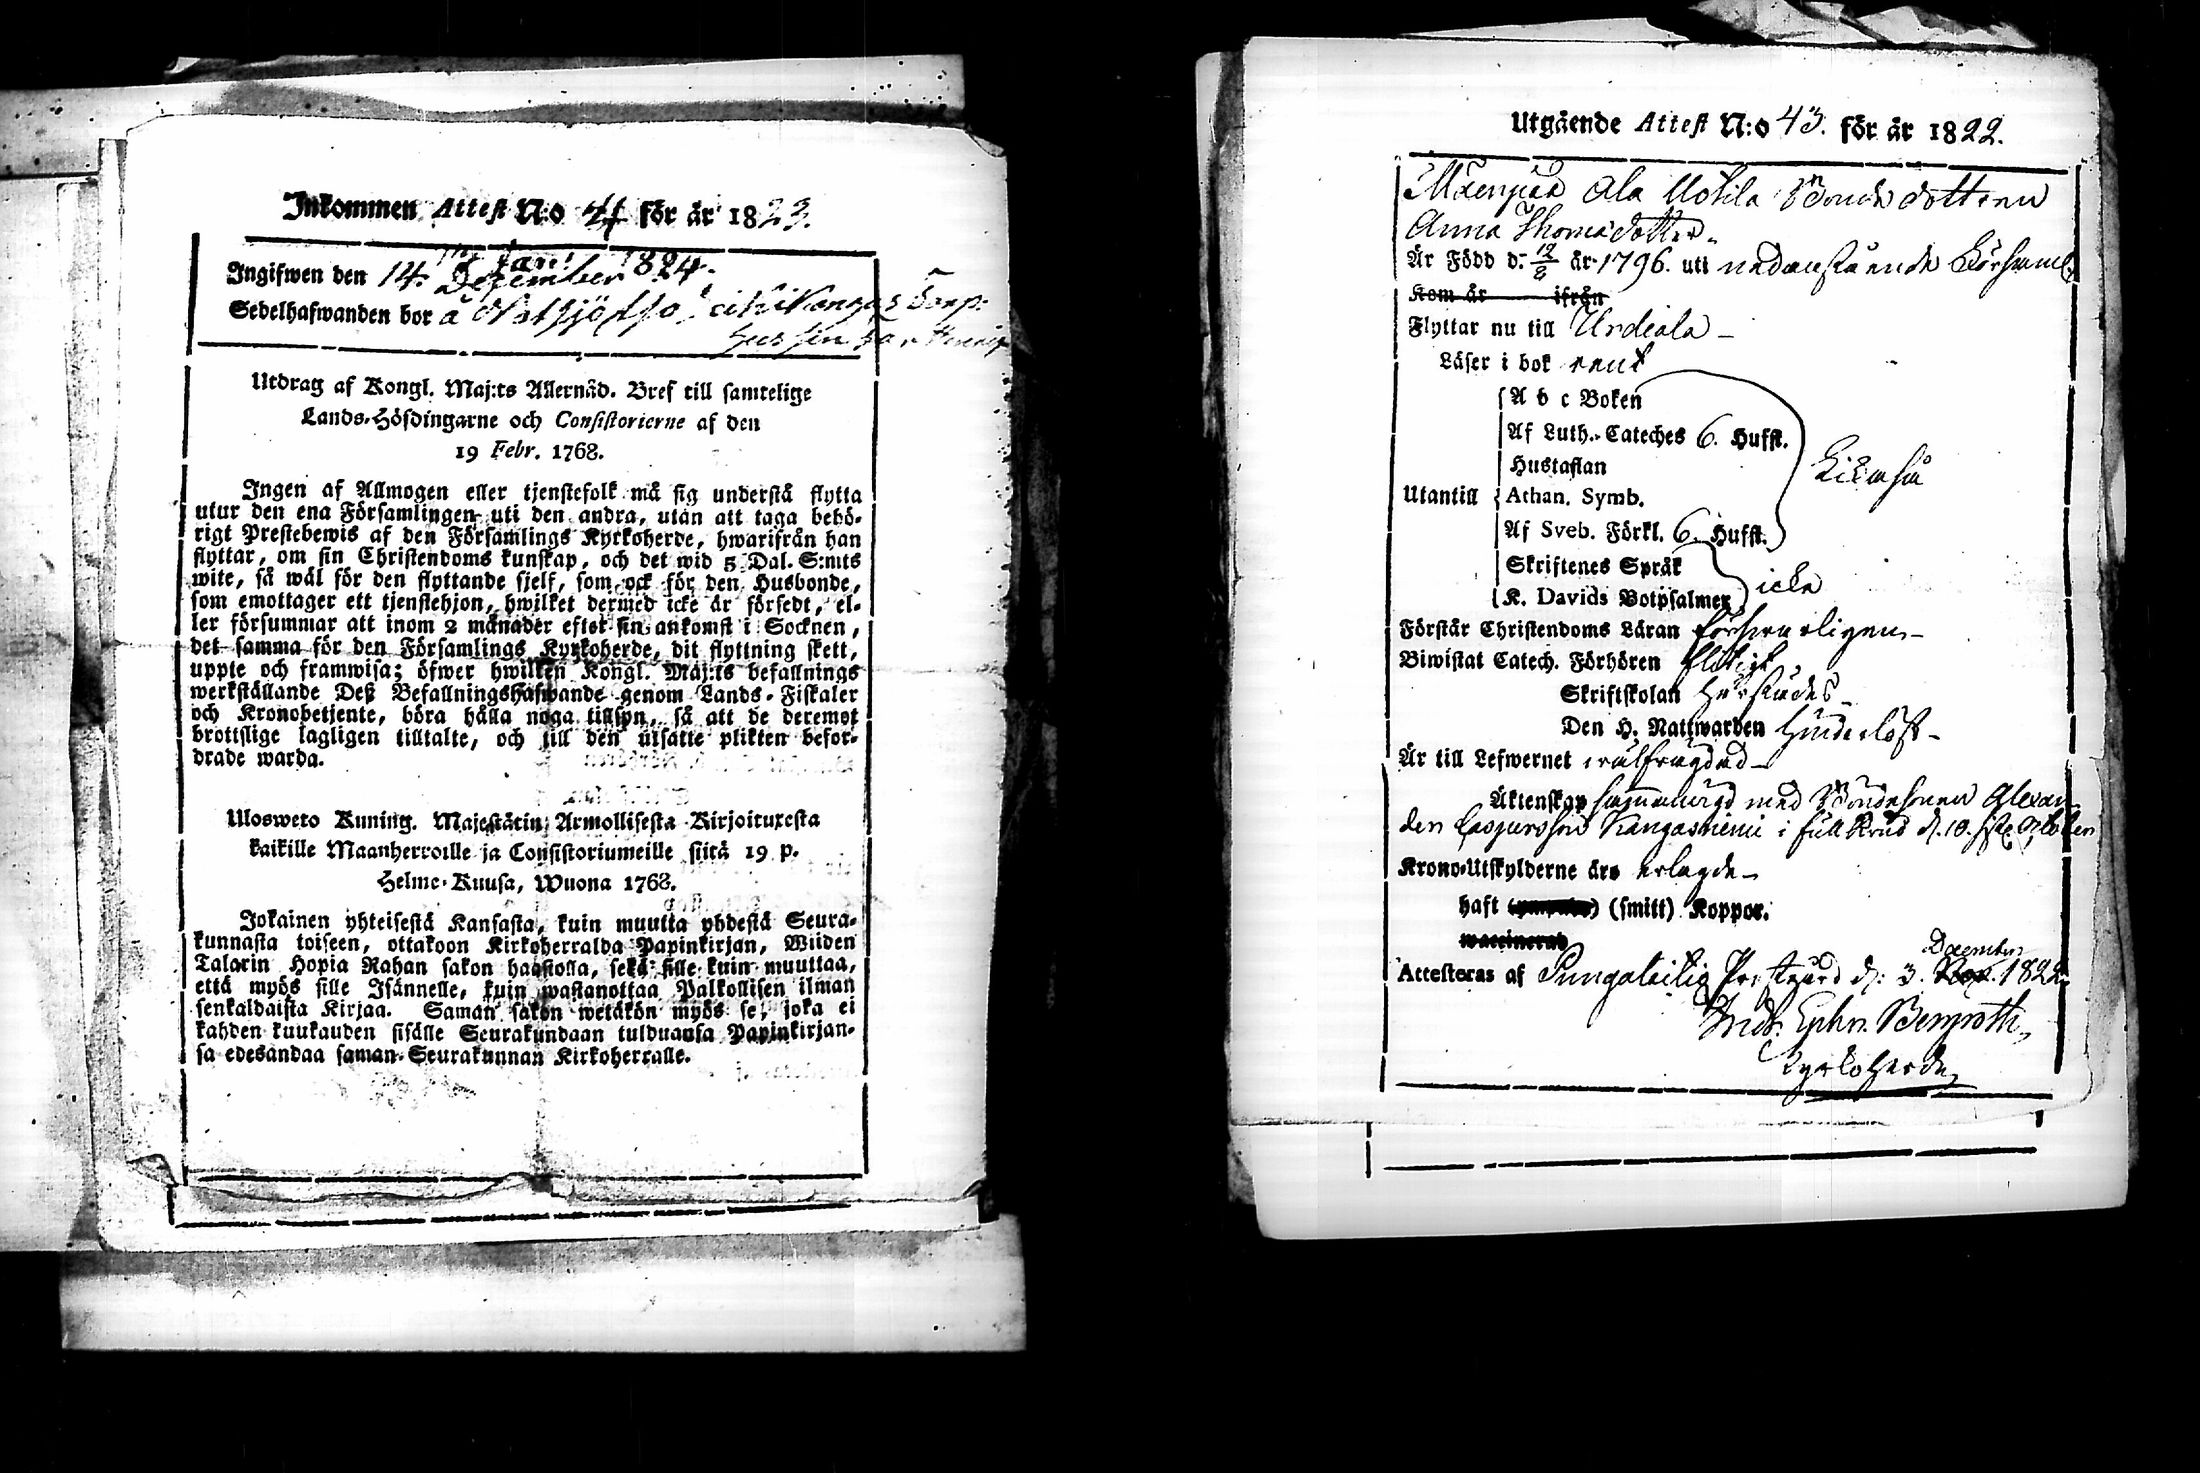 Inkommen Attest N:o 4 för år 1823.
Ingifwen den 14. December Jan: 1824.
Sedelhafwanden bor å
Utdrag af Kongl. Maj:ts Allernåd. Bref till samtelige
Lands-Höfdingarne och Consistorierne af den
19 Febr. 1768.
Ingen af Allmogen eller tjenstefolk må sig understå flytta
utur den ena Församlingen uti den andra, utan att taga behö-
rigt Prestebewis af den Församlings Kyrkoherde, hwarifrån han
flyttar, om sin Christendoms kunskap, och det wid 5 Dal. S:mts
wite, så wäl för den flyttande sjelf, som ock för den Husbonde,
som emottager ett tjenstehjon, hwilket dermed icke är försedt, el-
ler försummar att inom 2 månader efter sin ankomst i Socknen,
det samma för den Församlings Kyrkoherde, dit flyttning skett,
uppte och framwisa; öfwer hwilken Kongl. Maj:ts befallnings
werkställande Deß Befallningshafwande genom Lands-Fiskaler
och Kronobetjente, böra hålla noga tillsyn, så att de deremot
brottslige lagligen tilltalte, och till den utsatte plikten befor-
drade warda.
Ulosweto Kuning. Majestätin Armollisesta Kirjoituxesta
kaikille Maanherroille ja Consistoriumeille siitä 19 p.
Helme-Kuusa, Wuona 1768.
Jokainen yhteisestä Kansasta, kuin muutta yhdestä Seura-
kunnasta toiseen, ottakoon Kirkoherralda Papinkirjan, Wiiden
Talarin Hopia Rahan sakon haastolla, sekä sille kuin muuttaa,
että myös sille Isännelle, kuin wastanottaa Palkollisen ilman
senkaldaista Kirjaa. Saman sakon wetäkön myös se, joka ei
kahden kuukauden sisälle Seurakundaan tulduansa Papinkirjan-
sa edesandaa saman Seurakunnan Kirkoherralle.
Utgående Attest N:o 43. för år 1822.
Ala Uotila Bonde dottren
Anna Thomædotter
Är Född d: 12/2 år 1796. uti nedanstående Församl.
Kom år ifrån
Flyttar nu till Urdiala
Läser i bok rent
A b c Boken
Af Luth. Cateches 6. Hufst.
Hustaflan
Utantill Athan. Symb.
Af Sveb. Förkl. 6. Hufst.
Skriftenes Språk
K. Davids Botpsalmer icke
Förstår Christendoms Läran försvarligen
Biwistat Catech. Förhören flitigt
Skriftskolan härstädes
Den H. Nattwarden Hinderlöst
Är till Lefwernet wälfrägdad
Äktenskap sammanvigd med Bondesonen Alexan-
der Caspersson Kangasniemi i d. 10. October
Krono-Utskylderne äro erlagde
haft (smitt) Koppor.
waccinerad
Attesteras af Pungalaitio Prestgård d: 3. December 1822
And. Ephr. Bergroth
Kyrkoherde